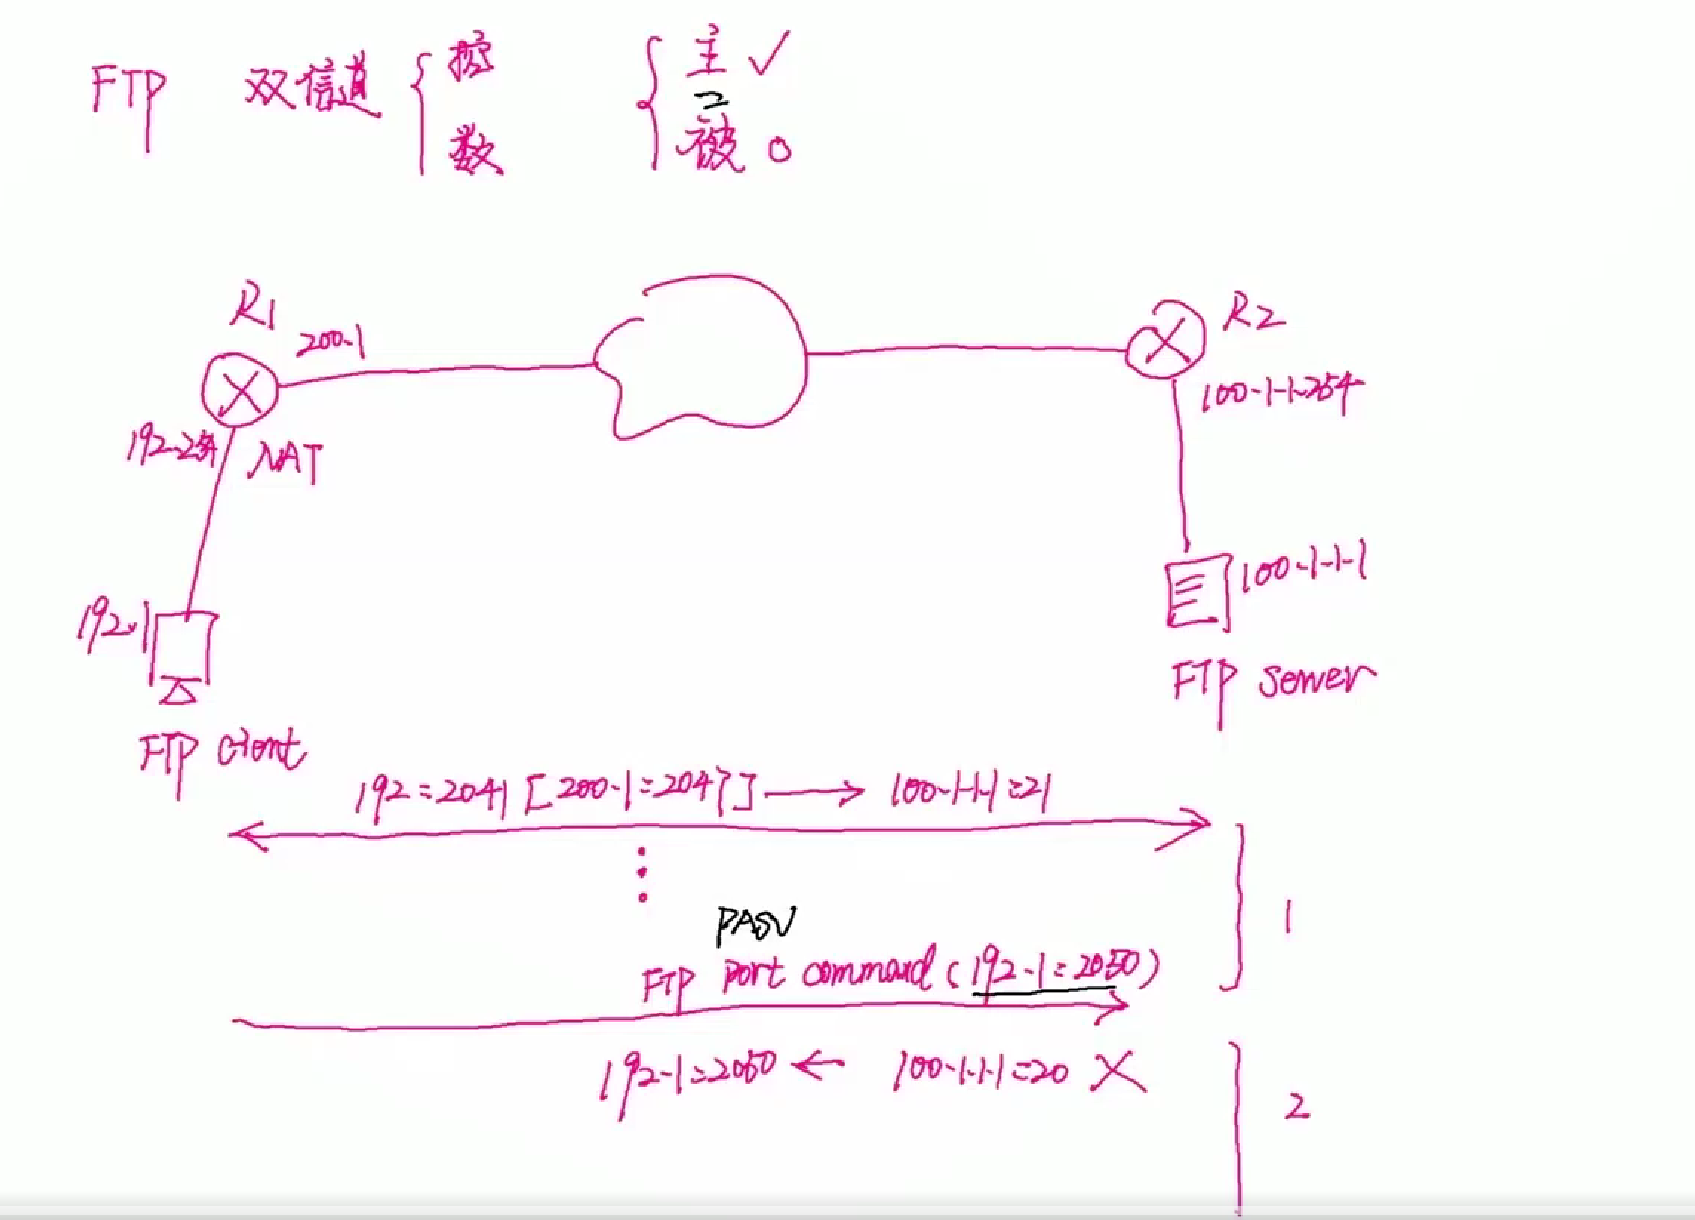 FTP 双信道 { 控 { 主 ✓
数 被 O
R1
200.1
R2
100.1.1.254
192.254
NAT
192.1
100.1.1.1
FTP server
FTP client
192:2041 [200.1:2047] → 100.1.1.1:21
1
PASV
FTP port command (192.1:2050)
192.1:2050 ← 100.1.1.1:20 X
2